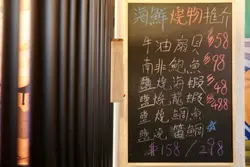 海鮮燒物推介
牛油扇貝 $58
南非鮑魚 $98
鹽燒海蝦 $48
鹽燒龍蝦 $488
鹽燒鯛魚
鹽燒鯧魚
$158/298